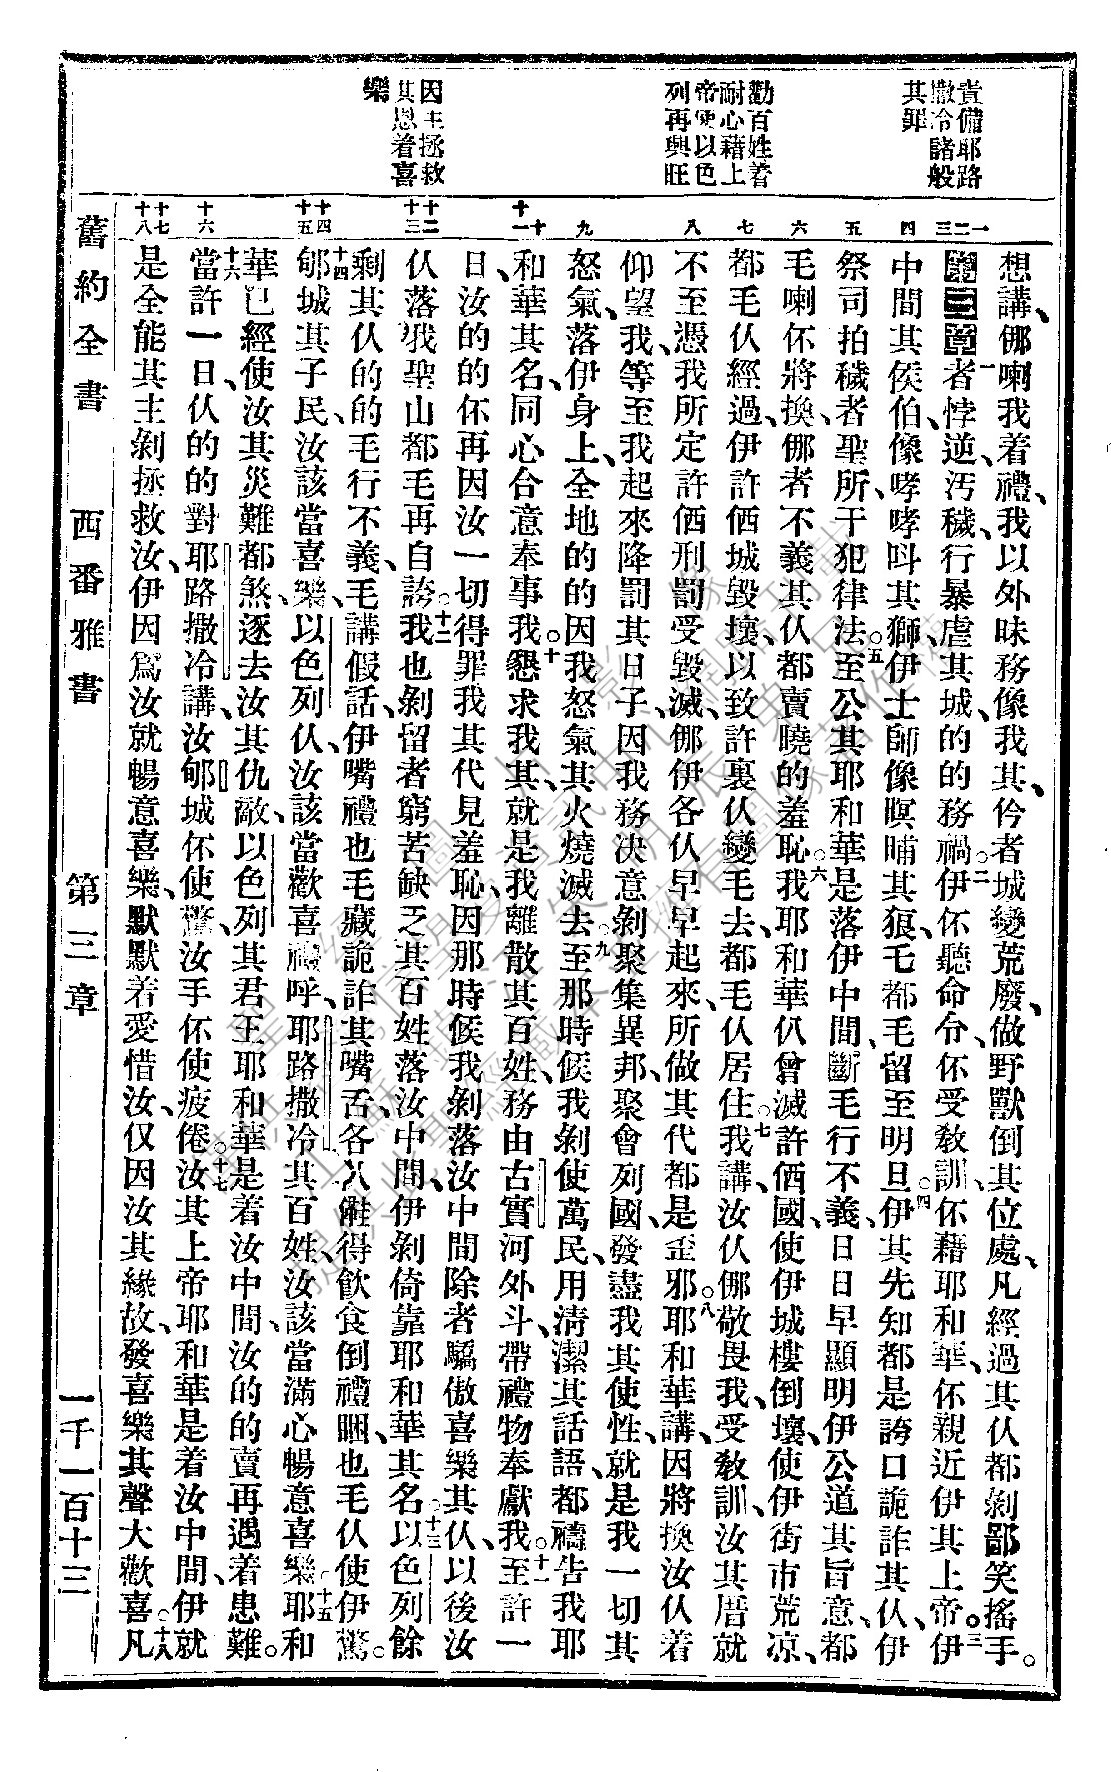 責備耶路
撒冷諸般
其罪
勸百姓着
耐心藉上
帝使以色
列再興旺
因主拯救
其恩着喜
樂
一
二
三
四
五
六
七
八
九
十
十一
十二
十三
十四
十五
十六
十七
十八
想講、㑚喇我着禮、我以外昧務像我其、仱者城變荒廢、做野獸倒其位處、凡經過其仈都剝鄙笑搖手。
第三章 一者悖逆汚穢、行暴虐其城、的的務禍。二伊伓聽命令、伓受敎訓、伓藉耶和華、伓親近伊其上帝。三伊
中間其侯伯、像哮哮呌其獅、伊士師像暝晡其狼、乇都毛留至明旦。四伊其先知都是誇口詭詐其仈、伊
祭司拍穢者聖所、干犯律法。五至公其耶和華是落伊中間、斷毛行不義、日日早顯明伊公道其旨意、都
毛喇伓將換、㑚者不義其仈、都賣曉的羞恥。六我耶和華仈曾滅許㑻國、使伊城樓倒壞、使伊街市荒凉、
都毛仈經過、伊許㑻城毀壞、以致許裏仈變毛去、都毛仈居住。七我講、汝仈㑚敬畏我、受敎訓、汝其厝就
不至憑我所定許㑻刑罰受毀滅、㑚伊各仈早早起來、所做其代都是歪邪。八耶和華講、因將換汝仈着
仰望我、等至我起來降罰其日子、因我務決意剝聚集異邦、聚會列國、發盡我其使性、就是我一切其
怒氣、落伊身上、全地的的因我怒氣其火燒滅去。九至那時候、我剝使萬民、用淸潔其話語、都禱告我耶
和華其名、同心合意奉事我。十懇求我其、就是我離散其百姓、務由古實河外斗、帶禮物奉獻我。十一至許一
日、汝的的伓再因汝一切得罪我其代見羞恥、因那時候、我剝落汝中間除者驕傲喜樂其仈、以後汝
仈落我聖山都毛再自誇。十二我也剝留者窮苦缺乏其百姓、落汝中間、伊剝倚靠耶和華其名。十三以色列餘
剩其仈的的毛行不義、毛講假話、伊嘴禮也毛藏詭詐其嘴舌、各人能得飮食倒禮睏、也毛仈使伊驚。
十四郇城其子民、汝該當喜樂、以色列仈、汝該當歡喜禮呼、耶路撒冷其百姓、汝該當滿心暢意喜樂。十五耶和
華已經使汝其災難都煞、逐去汝其仇敵、以色列其君王耶和華是着汝中間、汝的的賣再遇着患難。
十六當許一日、仈的的對耶路撒冷講、汝郇城伓使驚、汝手伓使疲倦。十七汝其上帝耶和華是着汝中間、伊就
是全能其主、剝拯救汝、伊因爲汝就暢意喜樂、默默着愛惜汝、仅因汝其緣故、發喜樂其聲大歡喜。十八凡
舊約全書 西番雅書 第三章 一千一百十三